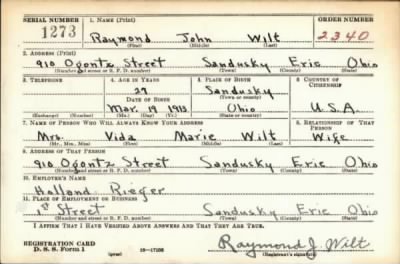 SERIAL NUMBER 1. NAME (Print) ORDER NUMBER
1273 Raymond John Wilt 2340
(First) (Middle) (Last)
2. ADDRESS (Print)
910 Ogontz Street Sandusky Erie Ohio
(Number and street or R. F. D. number) (Town) (County) (State)
3. TELEPHONE 4. AGE IN YEARS 5. PLACE OF BIRTH 6. COUNTRY OF CITIZENSHIP
27 Sandusky
DATE OF BIRTH (Town or county)
Mar. 19 1913 Ohio U.S.A
(Exchange) (Number) (Mo.) (Day) (Yr.) (State or country)
7. NAME OF PERSON WHO WILL ALWAYS KNOW YOUR ADDRESS 8. RELATIONSHIP OF THAT PERSON
Mrs. Vida Marie Wilt Wife
(Mr., Mrs., Miss) (First) (Middle) (Last)
9. ADDRESS OF THAT PERSON
910 Ogontz Street Sandusky Erie Ohio
(Number and street or R. F. D. number) (Town) (County) (State)
10. EMPLOYER'S NAME
Holland Rieger
11. PLACE OF EMPLOYMENT OR BUSINESS
1st Street Sandusky Erie Ohio
(Number and street or R. F. D. number) (Town) (County) (State)
I AFFIRM THAT I HAVE VERIFIED ABOVE ANSWERS AND THAT THEY ARE TRUE.
REGISTRATION CARD
D. S. S. Form 1 (over) 16—17105 Raymond J. Wilt
(Registrant's signature)